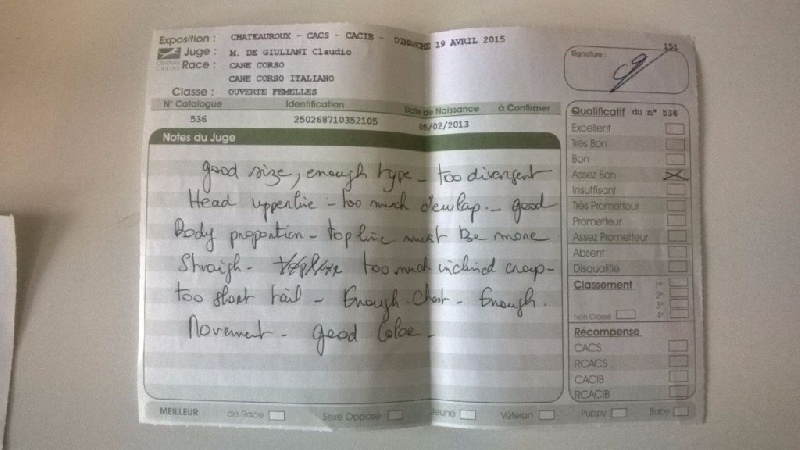 Exposition : CHATEAUROUX - CACS - CACIB - DIMANCHE 19 AVRIL 2015
Juge : M. DE GIULIANI Claudio
Race : CANE CORSO
CANE CORSO ITALIANO
Classe : OUVERTE FEMELLES
Signature :
151
N° Catalogue Identification Date de Naissance à Confirmer
536 250268710352105 05/02/2013
Notes du Juge
good size, enough type - too divergent
Head upperline - too much dewlap - good
Body proportion - top line must Be more
Straigh - too much inclined croup -
too short tail - Enough Chest - Enough
Movement - good Color -
Qualificatif du n° 536
Excellent
Très Bon
Bon
Assez Bon
Insuffisant
Très Prometteur
Prometteur
Assez Prometteur
Absent
Disqualifié
Classement
Non Classé
Récompense
CACS
RCACS
CACIB
RCACIB
MEILLEUR de Race Sexe Opposé Jeune Vétéran Puppy Baby